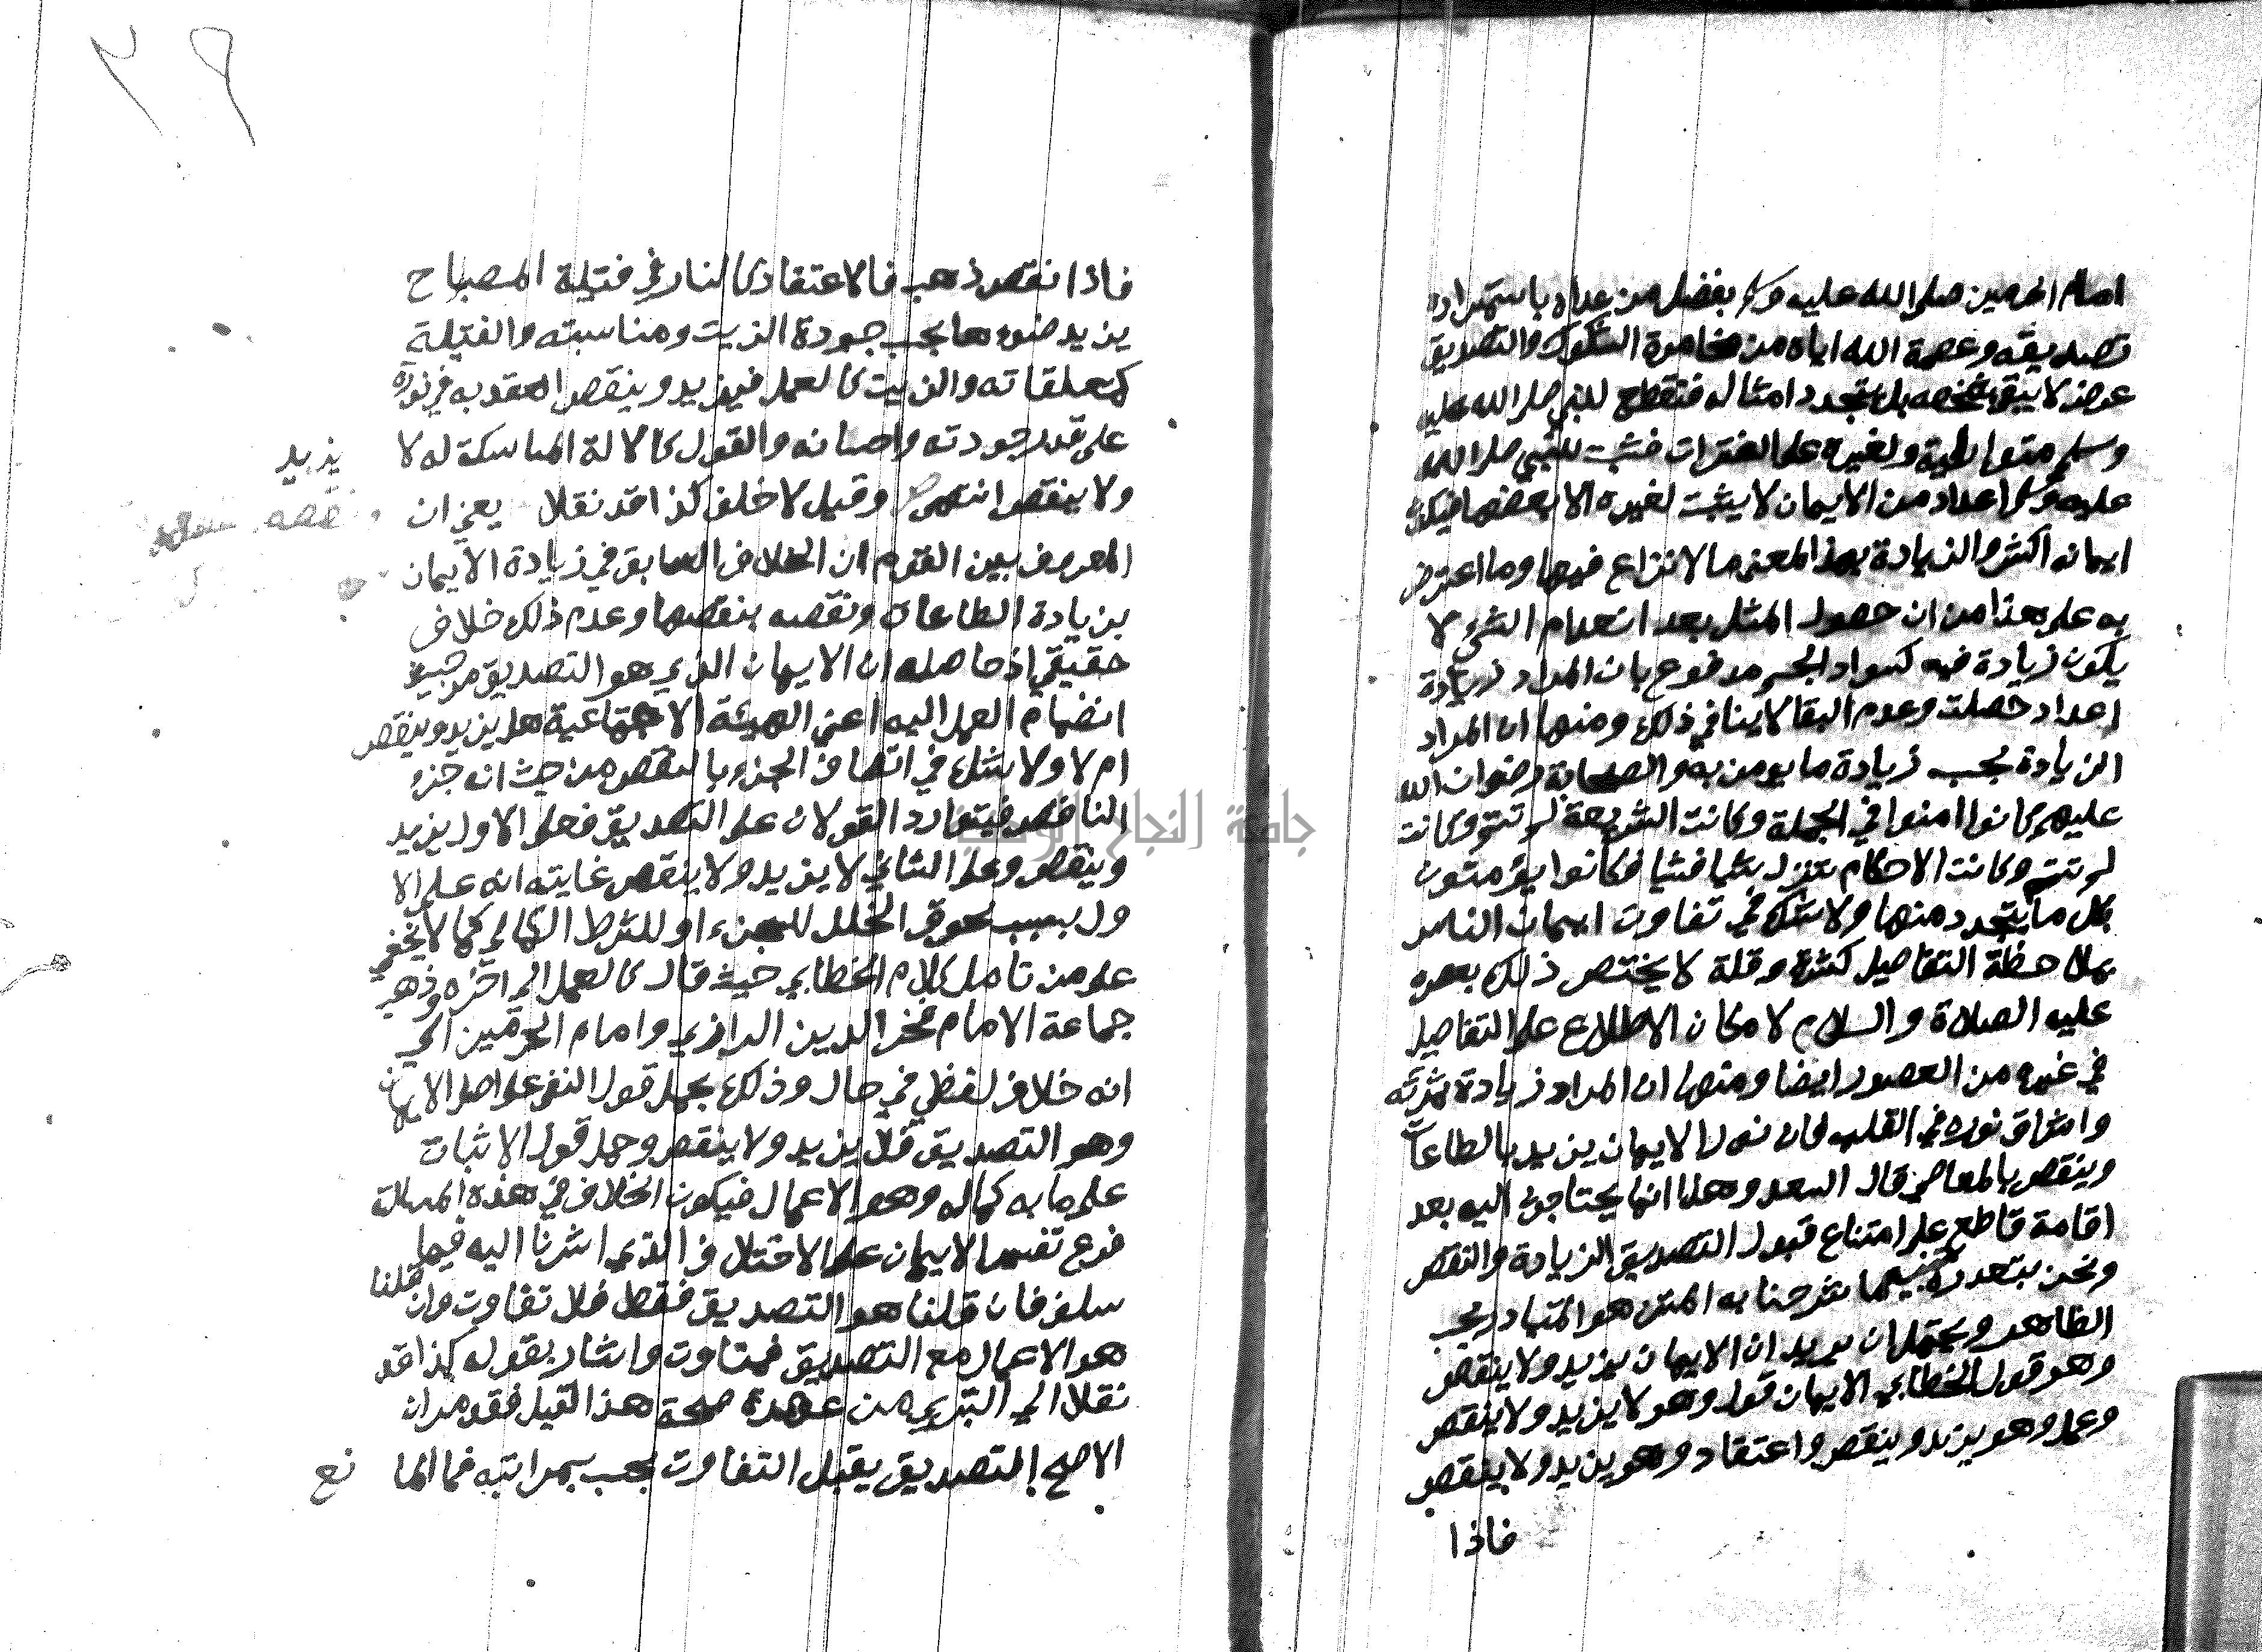 امام الحرمين صلى الله عليه وسلم بفضل من عداه باستمرار
تصديقه وعصمة الله اياه من مخامرة الشكوك والتصديق
عرض لا يبقى بشخصه بل بتجدد امثاله فتقطع للنبي صلى الله عليه
وسلم متوالية ولغيره على الفترات فثبت للنبي صلى الله
عليه وسلم اعداد من الايمان لا يثبت لغيره الا بعضها فيكون
ايمانه اكثر والزيادة بهذا المعنى مما لا نزاع فيها وما اعترض
به على هذا من ان حصول المثل بعد انعدام الشيء لا
يكون زيادة فيه كسواد الجسم مدفوع بان المراد زيادة
اعداد حصلت وعدم البقا لا ينافي ذلك ومنها ان المراد
الزيادة بحسب زيادة ما يومن به والصحابة رضوان الله
عليهم كانوا امنوا في الجملة وكانت الشريعة لم تتم وكانت
لم تتم وكانت الاحكام تنزل شيا فشيا فكانوا يؤمنون
بكل ما يتجدد منها ولا شك في تفاوت ايمان الناس
بملاحظة التفاصيل كثرة وقلة لا يختص ذلك بعصره
عليه الصلاة والسلام لامكان الاطلاع على التفاصيل
في غيره من العصور ايضا ومنها ان المراد زيادة ثمرته
واشراق نوره في القلب فان نور الايمان يزيد بالطاعات
وينقص بالمعاصي قال السعد وهذا انما يحتاجون اليه بعد
اقامة قاطع على امتناع قبول التصديق الزيادة والنقص
ونحن بتعدد ما شرحنا به المتن هو المتبادر بحسب
الظاهر ويحتمل ان يريد ان الايمان يزيد ولا ينقص
وهو قول الخطابي الايمان قول وهو لا يزيد ولا ينقص
وعمل وهو يزيد وينقص واعتقاد وهو يزيد ولا ينقص
فاذا
٣٩
فاذا نقص ذهب فالاعتقاد كالنار في فتيلة المصباح
يزيد ضوءها بحسب جودة الزيت ومناسبته والفتيلة
كمعلقاته والزيت كالعمل فيزيد وينقص العقد به في نوره
على قدر جودته واصانه والقول كالالة الماسكة له لا يزيد
ولا ينقص انتهى وقيل لا خلف كذا قد نقلا يعني ان
المعروف بين القوم ان الخلاف السابق في زيادة الايمان
بزيادة الطاعات ونقصه بنقصها وعدم ذلك خلاف
حقيقي اذ حاصله ان الايمان الذي هو التصديق من حيث
انضمام العمل اليه اعني الهيئة الاجتماعية هل يزيد وينقص
ام لا ولا شك في اتصاف الجزء بالنقص من حيث انه جزء
الناقص فيتوارد القولان على التصديق فعلى الاول يزيد
وينقص وعلى الثاني لا يزيد ولا ينقص غايته انه على الا
ول بسبب لحوق الخلل للجزء او للشرط الكمالي كما لا يخفى
على من تامل كلام الخطابي حيث قال كالعمل الى اخره وذهب
جماعة الامام فخر الدين الرازي وامام الحرمين الى
انه خلاف لفظي في حال وذلك بحمل قول النفي على اصل الايمان
وهو التصديق فلا يزيد ولا ينقص وحمل قول الاثبات
على ما به كماله وهو الاعمال فيكون الخلاف في هذه المسالة
فرع تفسير الايمان على الاختلاف الذي اشرنا اليه فيما
سلف فان قلنا هو التصديق فقط فلا تفاوت وان قلنا
هو الاعمال مع التصديق فمتفاوت واشار بقوله كذا قد
نقلا الى التبري من عهدة صحة هذا القيل فقد مر ان
الاصح التصديق يقبل التفاوت بحسب مراتبه فما الما نع
جامعة النجاح الوطنية